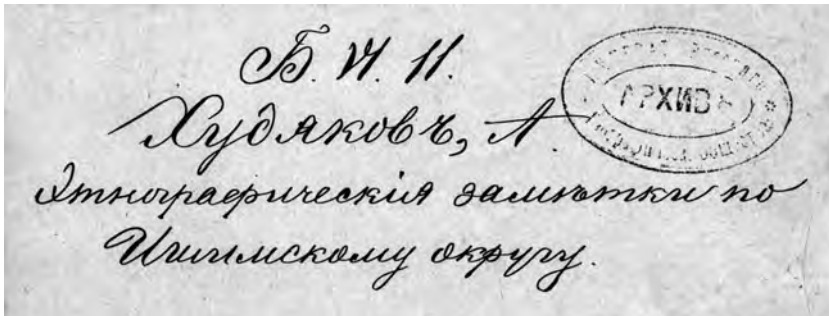 Б. VI. 11.
Худяковъ, А.
Этнографическія замѣтки по
Ишимскому округу.
АРХИВЪ